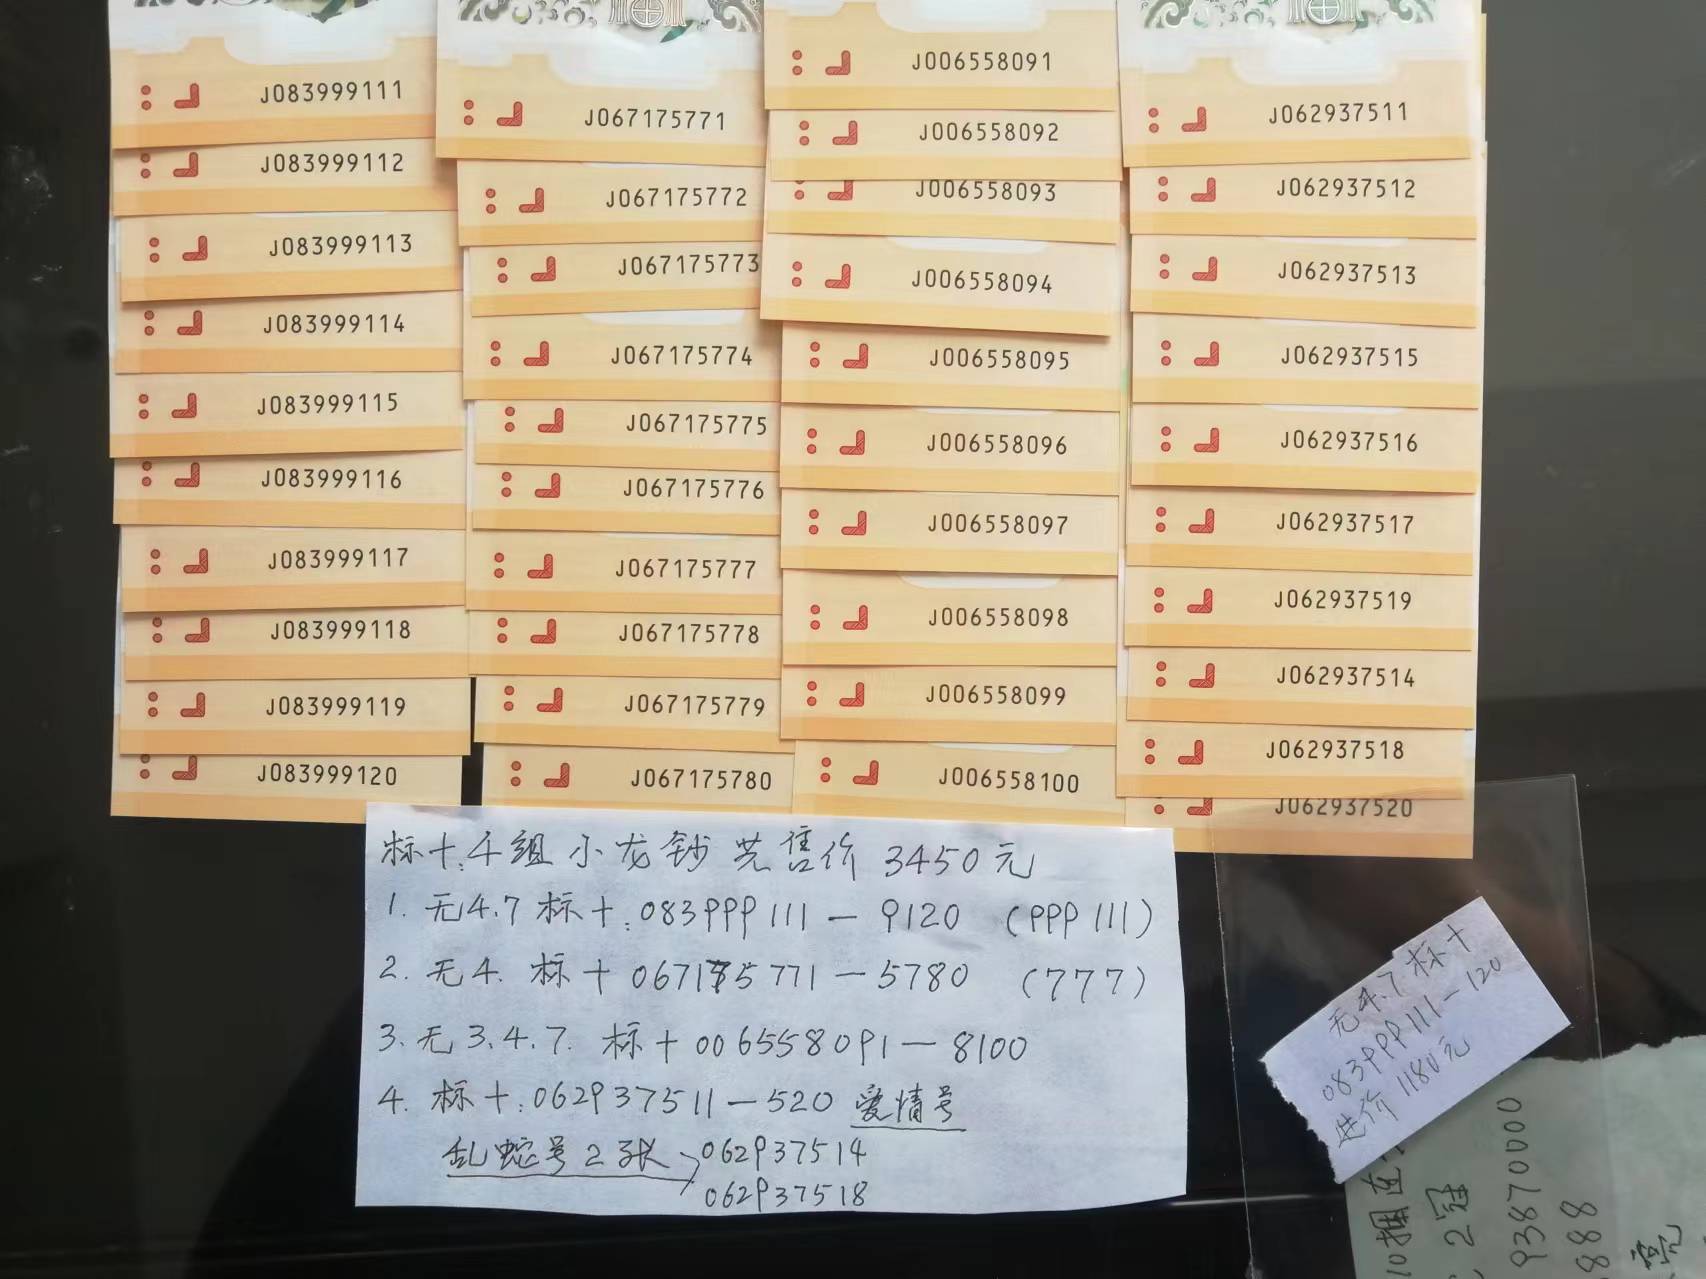 J083999111
J083999112
J083999113
J083999114
J083999115
J083999116
J083999117
J083999118
J083999119
J083999120
J067175771
J067175772
J067175773
J067175774
J067175775
J067175776
J067175777
J067175778
J067175779
J067175780
J006558091
J006558092
J006558093
J006558094
J006558095
J006558096
J006558097
J006558098
J006558099
J006558100
J062937511
J062937512
J062937513
J062937515
J062937516
J062937517
J062937519
J062937514
J062937518
J062937520
标十.4组 小龙钞 共售价 3450元
1. 无4.7 标十:083999111—9120 (999111)
2. 无4. 标十067175771—5780 (777)
3. 无3.4.7. 标十006558091—8100
4. 标十:062937511—520 爱情号
乱蛇号2张→062937514
062937518
无4.7.标十
083999111—120
进价 1180元
10捆连
2冠
93870000
888
亮